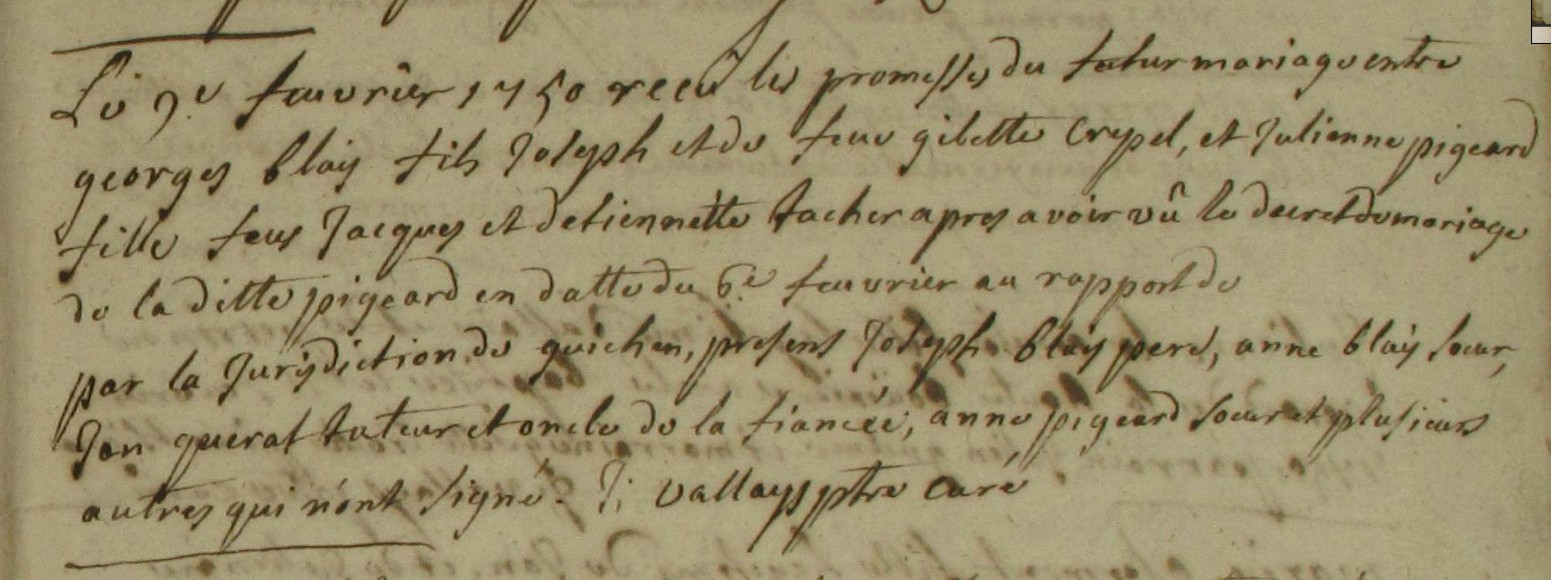 Le 9e feuvrier 1750 receu les promesses du futur mariage entre
georges blay fils Joseph et de feue gilette Crespel, et Julienne pigeard
fille feus Jacques et detiennette tacher apres avoir vû le decret de mariage
de la ditte pigeard en datte du 6e feuvrier au rapport de
par la Jurisdiction de guichen, presens Joseph blay pere, anne blay soeur,
Jan querat tuteur et oncle de la fiancée, anne pigeard soeur et plusieurs
autres qui n'ont signé. J: vallays ptre curé